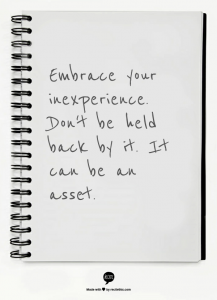 Embrace your
inexperience.
Don't be held
back by it. It
can be an
asset.
Made with ♥ by recitethis.com